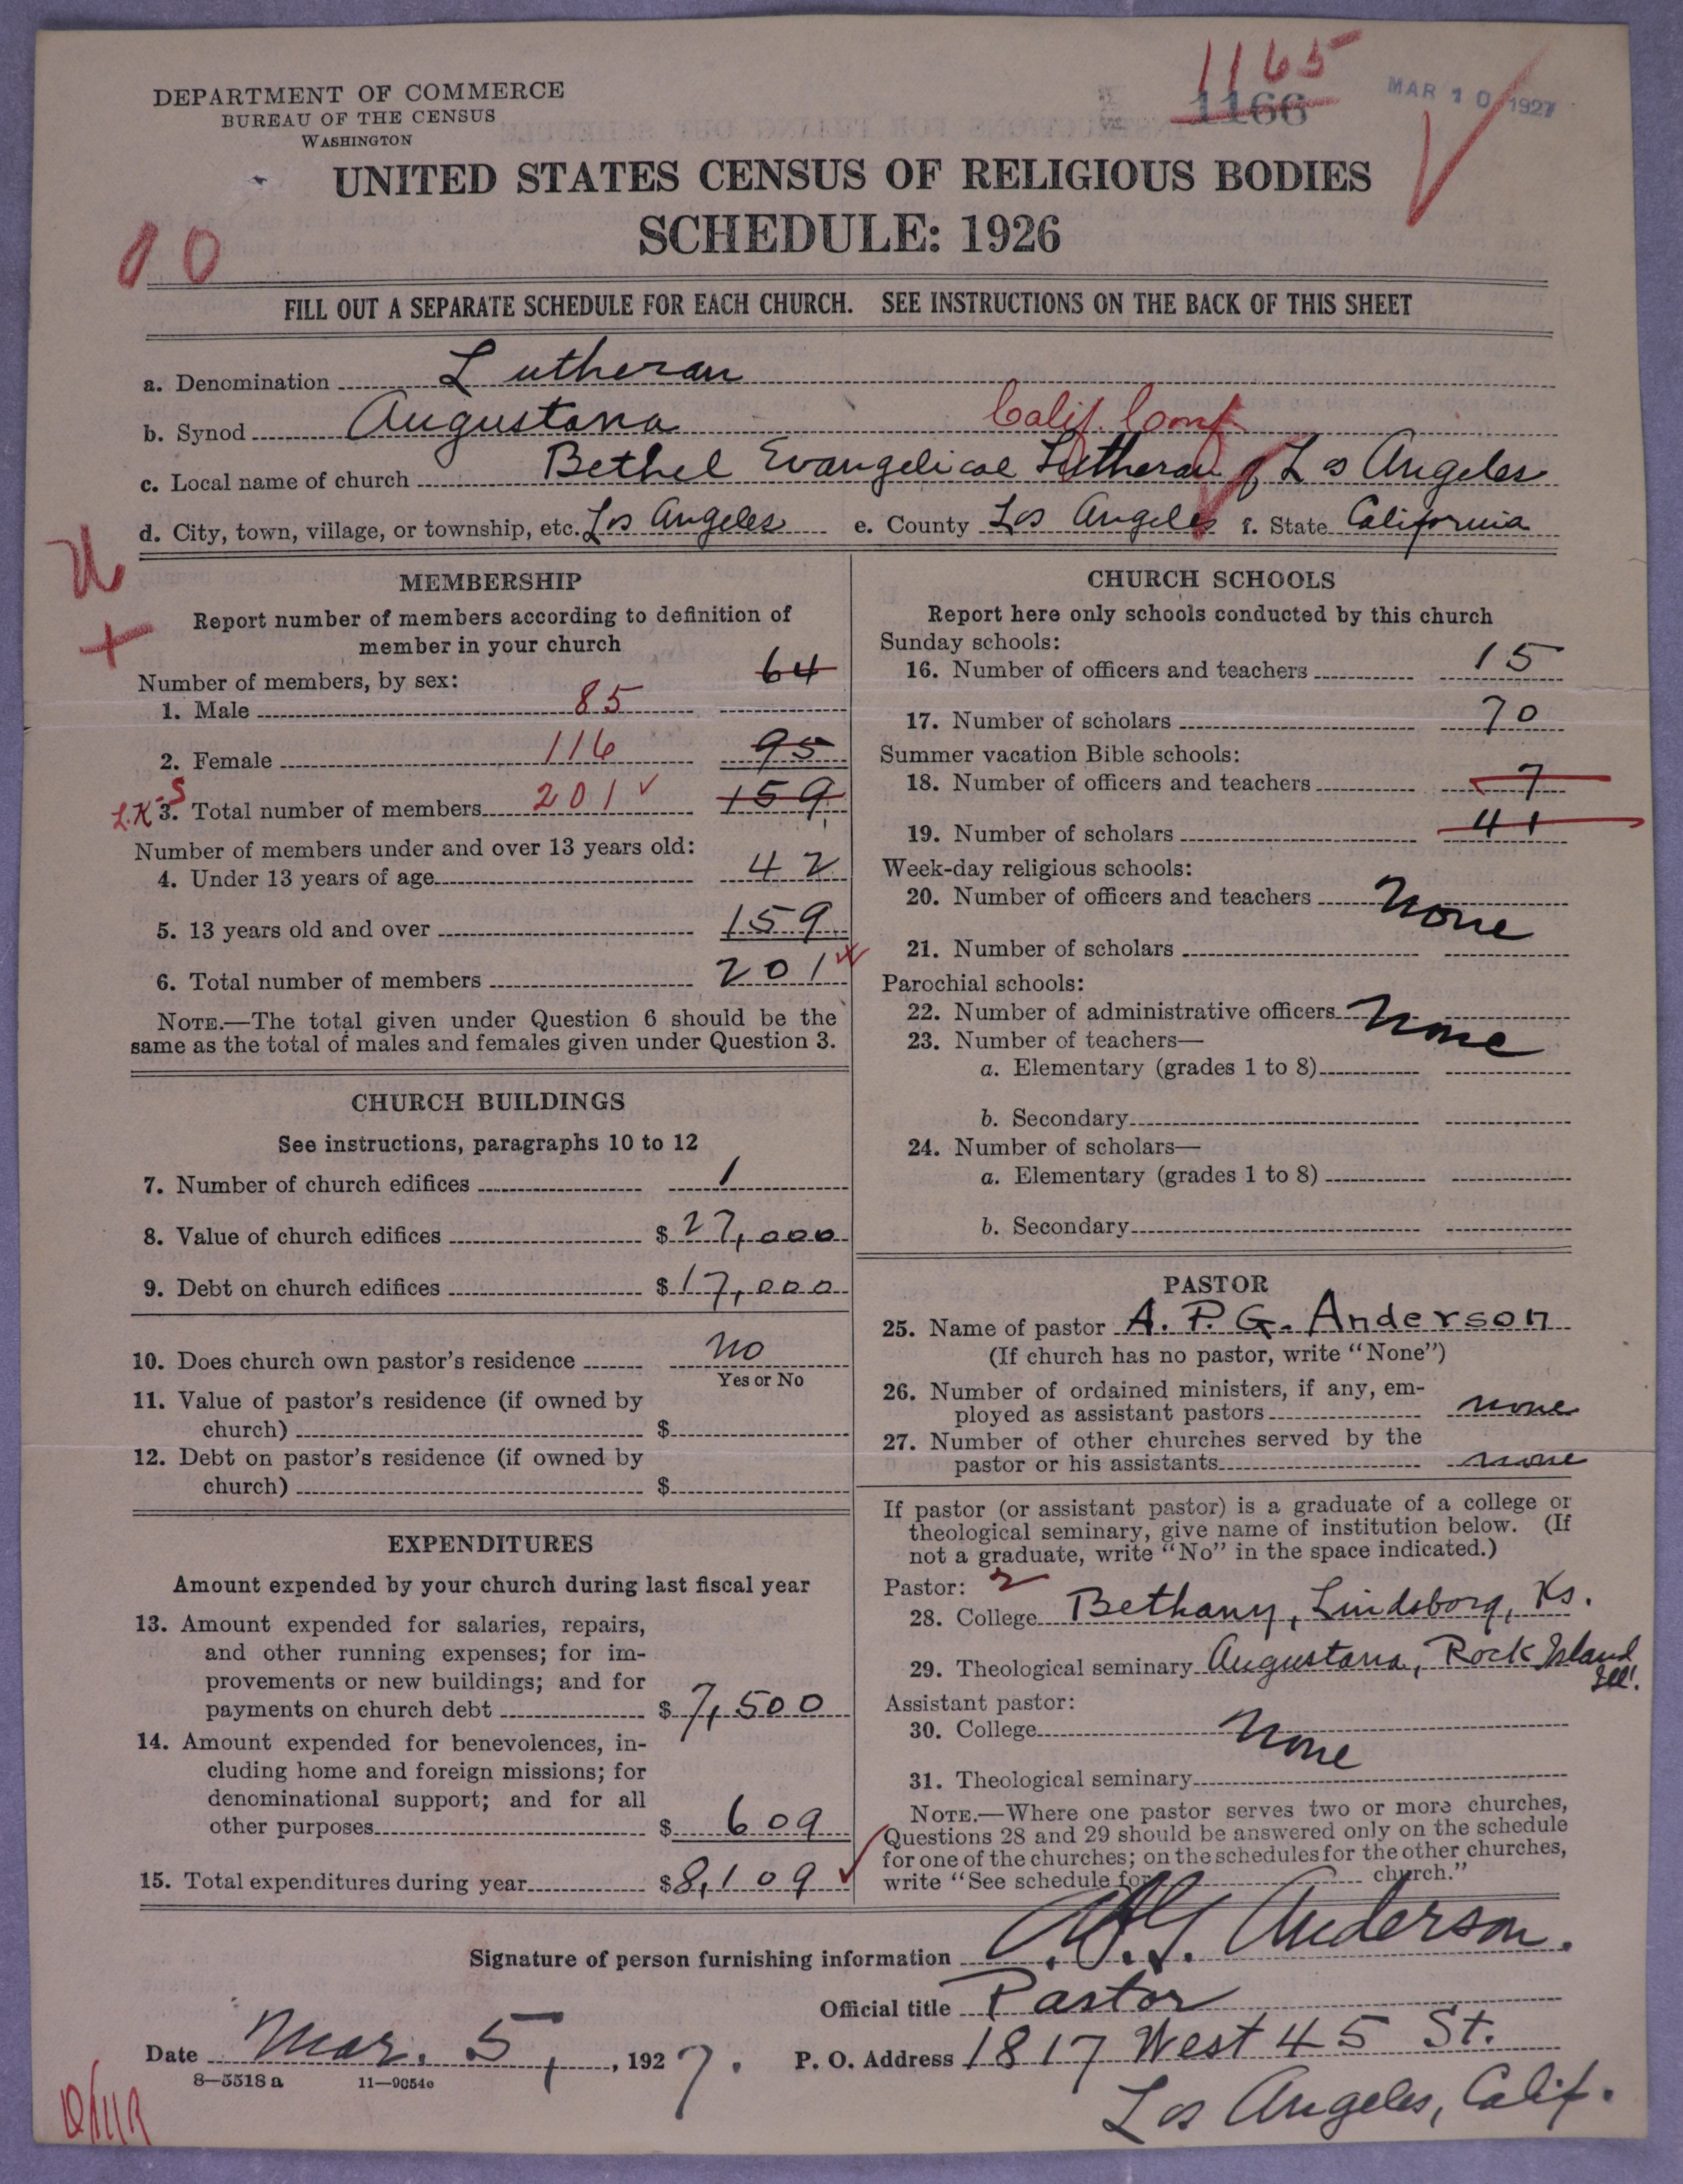 1165
1166
MAR 10 1927
DEPARTMENT OF COMMERCE
BUREAU OF THE CENSUS
WASHINGTON
UNITED STATES CENSUS OF RELIGIOUS BODIES
SCHEDULE: 1926
10
FILL OUT A SEPARATE SCHEDULE FOR EACH CHURCH. SEE INSTRUCTIONS ON THE BACK OF THIS SHEET
a. Denomination Lutheran
b. Synod Augustana Calif. Conf
c. Local name of church Bethel Evangelical Lutheran of Los Angeles
d. City, town, village, or township, etc. Los Angeles e. County Los Angeles f. State California
MEMBERSHIP
Report number of members according to definition of
member in your church
Number of members, by sex:
64
1. Male 85
2. Female 116 95
L.K.S 3. Total number of members 201 159
Number of members under and over 13 years old:
4. Under 13 years of age 42
5. 13 years old and over 159
6. Total number of members 201
NOTE.—The total given under Question 6 should be the
same as the total of males and females given under Question 3.
CHURCH BUILDINGS
See instructions, paragraphs 10 to 12
7. Number of church edifices 1
8. Value of church edifices $ 27,000
9. Debt on church edifices $ 17,000
10. Does church own pastor's residence no
Yes or No
11. Value of pastor's residence (if owned by
church) $
12. Debt on pastor's residence (if owned by
church) $
EXPENDITURES
Amount expended by your church during last fiscal year
13. Amount expended for salaries, repairs,
and other running expenses; for im-
provements or new buildings; and for
payments on church debt $ 7,500
14. Amount expended for benevolences, in-
cluding home and foreign missions; for
denominational support; and for all
other purposes $ 609
15. Total expenditures during year $ 8,109
CHURCH SCHOOLS
Report here only schools conducted by this church
Sunday schools:
16. Number of officers and teachers 15
17. Number of scholars 70
Summer vacation Bible schools:
18. Number of officers and teachers 7
19. Number of scholars 41
Week-day religious schools:
20. Number of officers and teachers None
21. Number of scholars
Parochial schools:
22. Number of administrative officers None
23. Number of teachers—
a. Elementary (grades 1 to 8)
b. Secondary
24. Number of scholars—
a. Elementary (grades 1 to 8)
b. Secondary
PASTOR
25. Name of pastor A. P. G. Anderson
(If church has no pastor, write "None")
26. Number of ordained ministers, if any, em-
ployed as assistant pastors none
27. Number of other churches served by the
pastor or his assistants none
If pastor (or assistant pastor) is a graduate of a college or
theological seminary, give name of institution below. (If
not a graduate, write "No" in the space indicated.)
Pastor: 2
28. College Bethany, Lindsborg, Ks.
29. Theological seminary Augustana, Rock Island
Ill.
Assistant pastor:
30. College None
31. Theological seminary
NOTE.—Where one pastor serves two or more churches,
Questions 28 and 29 should be answered only on the schedule
for one of the churches; on the schedules for the other churches,
write "See schedule for church."
Signature of person furnishing information A. P. G. Anderson.
Official title Pastor
Date Mar. 5, , 1927. P. O. Address 1817 West 45 St.
8—5518 a 11—9054c
Los Angeles, Calif.